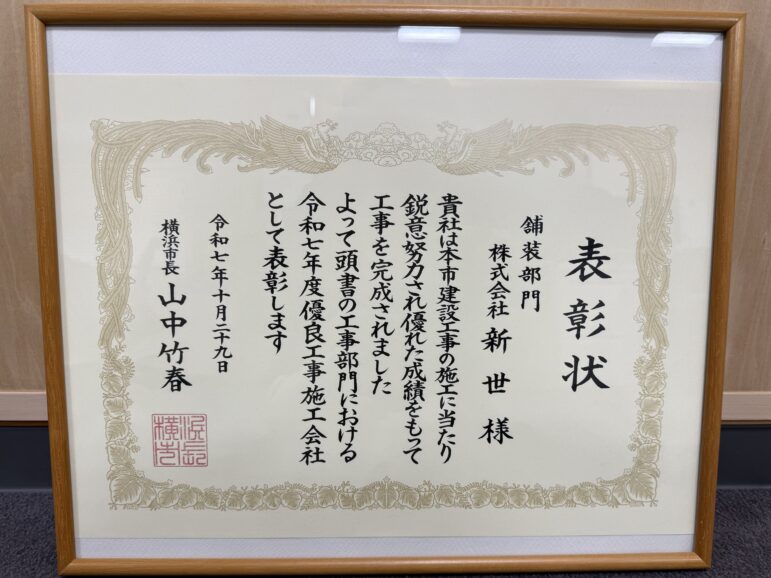 表彰状
舗装部門
株式会社 新世様
貴社は本市建設工事の施工に当たり
鋭意努力され優れた成績をもって
工事を完成されました
よって頭書の工事部門における
令和七年度優良工事施工会社
として表彰します
令和七年十月二十九日
横浜市長 山中竹春